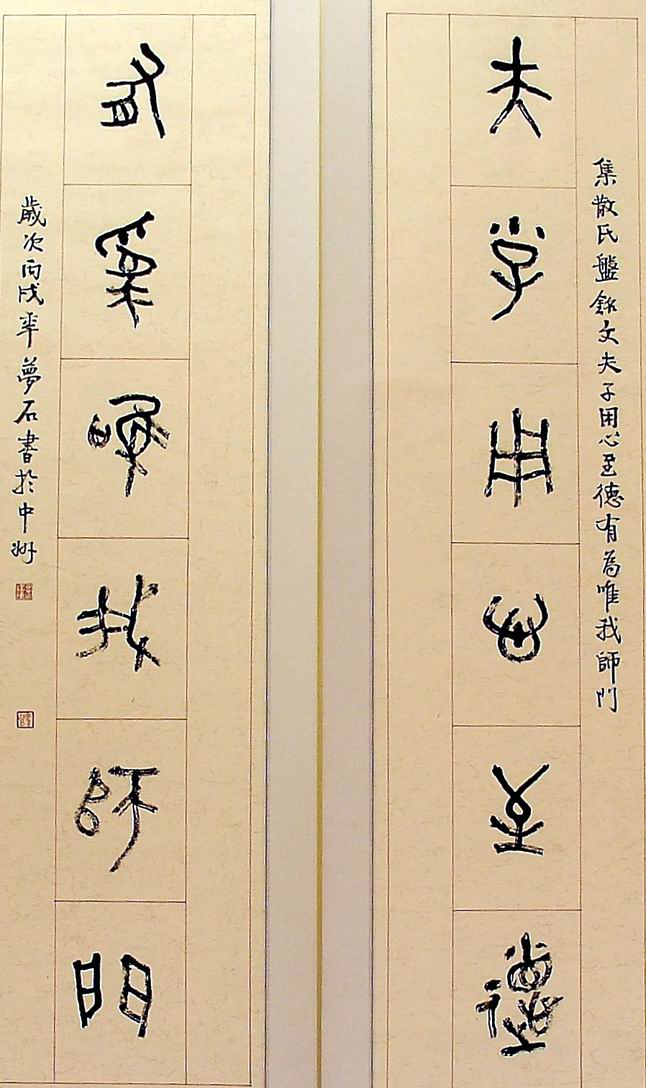 集散氏盤銘文夫子用心至德有為唯我師門
夫子用心至德
有為唯我師門
歲次丙戌年夢石書於中州